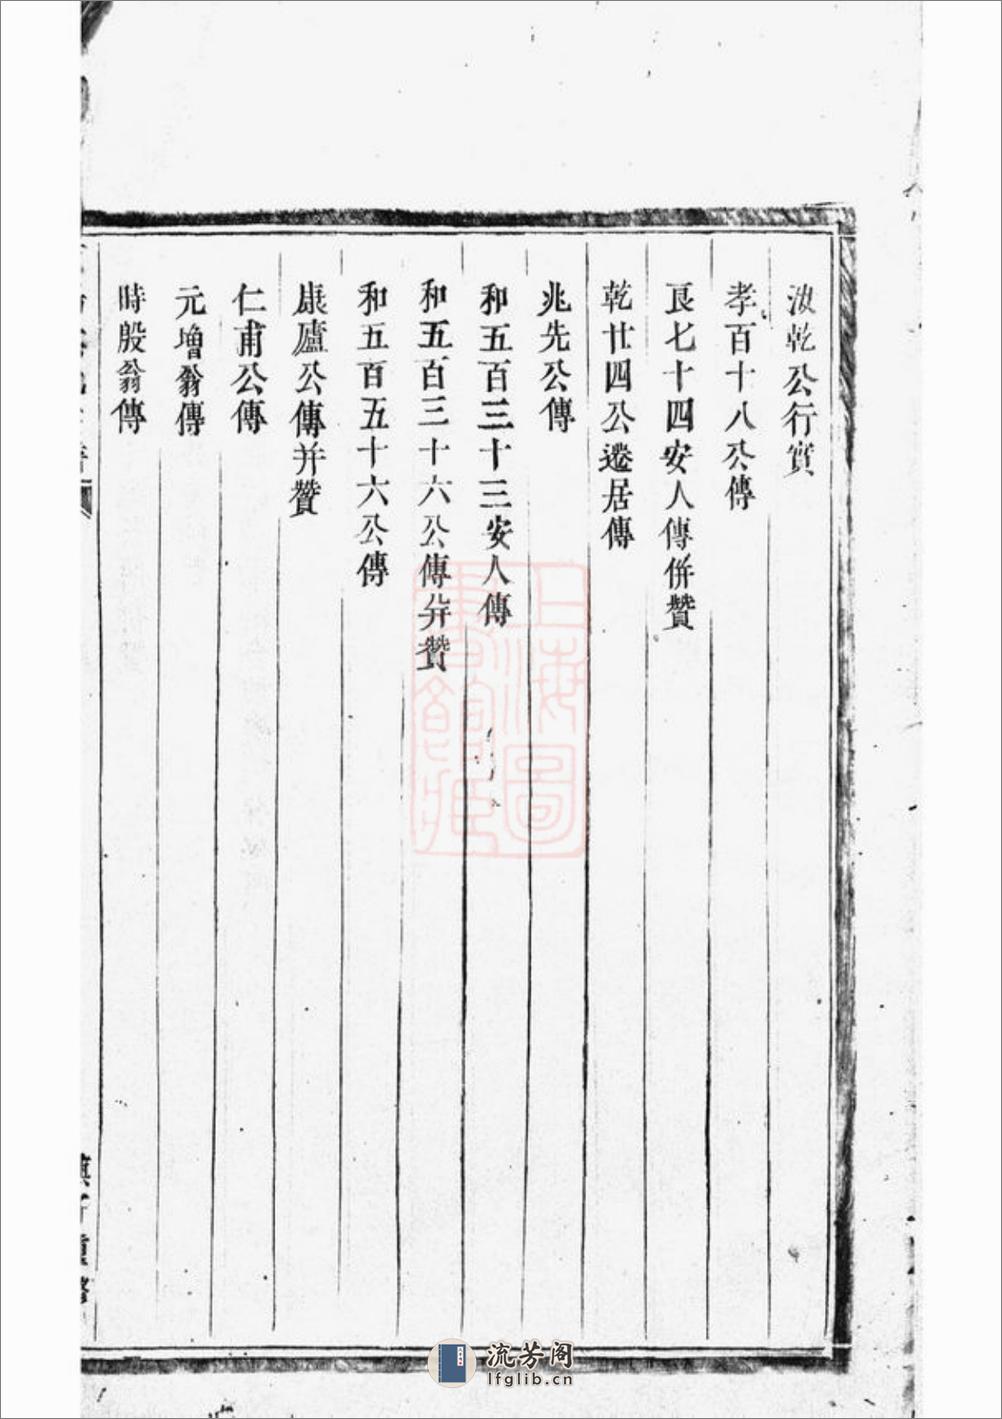 汝乾公行實
孝百十八公傳
良七十四安人傳併贊
乾廿四公遷居傳
兆先公傳
和五百三十三安人傳
和五百三十六公傳并贊
和五百五十六公傳
康廬公傳并贊
仁甫公傳
元增翁傳
時殷翁傳
上海圖
書館藏
流芳阁
lfglib.cn